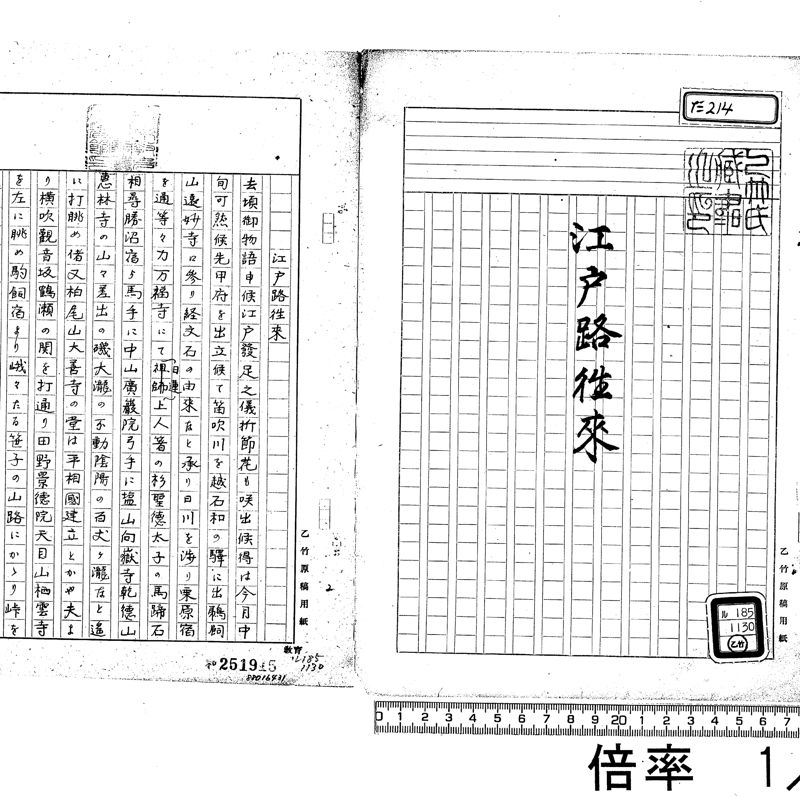 た214
乙竹氏
蔵書
江戸路往來
乙竹原稿用紙
ル185
1130
乙竹
江戸路往來
去頃御物語申候江戸發足之儀折節花も咲出候得は今月中
旬可然候先甲府を出立候て笛吹川を越石和の驛に出鵜飼
山遠妙寺に參り経文石の由來など承り日川を渉り栗原宿
を通等々力万福寺にて祖師上人箸の杉聖德太子の馬蹄石
(日蓮)
相尋勝沼宿ゟ馬手に中山廣嚴院弓手に塩山向嶽寺乾德山
惠林寺の山々差出の磯大瀧の不動陰陽の百丈ヶ瀧などと遙
に打眺め偖又柏尾山大善寺の堂は平相國建立とかや夫よ
り横吹觀音坂鶴瀬の関を打通り田野景德院天目山栖雲寺
を左に眺め駒飼宿より峨々たる笹子の山路にかゝり峠を
乙竹原稿用紙
2
教育
ル185
1130
昭和 25 19 5
88016431
0 1 2 3 4 5 6 7 8 9 10 1 2 3 4 5 6 7 8 9 20 1 2 3 4 5 6 7
倍率 1/